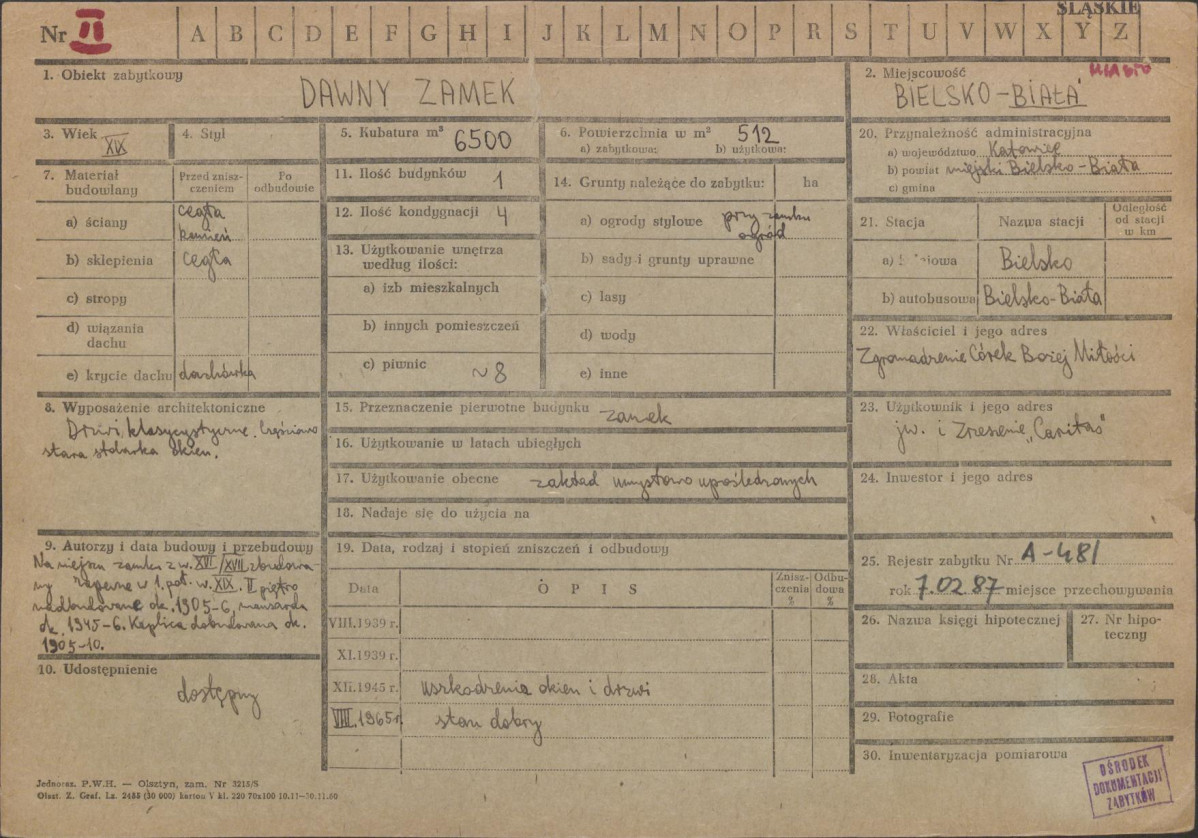 ŚLĄSKIE
Nr II A B C D E F G H I J K L M N O P R S T U V W X Y Z
1. Obiekt zabytkowy
DAWNY ZAMEK
2. Miejscowość
MIASTO
BIELSKO-BIAŁA
3. Wiek
XIX
4. Styl
5. Kubatura m³ 6500
6. Powierzchnia w m² 512
a) zabytkowa: b) użytkowa:
20. Przynależność administracyjna
a) województwo Katowice
b) powiat miejski Bielsko-Biała
c) gmina
7. Materiał budowlany
Przed zniszczeniem
Po odbudowie
a) ściany cegła
kamień
b) sklepienia cegła
c) stropy
d) wiązania
dachu
e) krycie dachu dachówka
11. Ilość budynków 1
12. Ilość kondygnacji 4
13. Użytkowanie wnętrza
według ilości:
a) izb mieszkalnych
b) innych pomieszczeń
c) piwnic ~8
14. Grunty należące do zabytku: ha
a) ogrody stylowe przy zamku
ogród
b) sady i grunty uprawne
c) lasy
d) wody
e) inne
21. Stacja Nazwa stacji
Odległość
od stacji
w km
a) Bielsko
b) autobusowa Bielsko-Biała
22. Właściciel i jego adres
Zgromadzenie Córek Bożej Miłości
8. Wyposażenie architektoniczne
Drzwi klasycystyczne. Częściowo
stara stolarka okien.
15. Przeznaczenie pierwotne budynku zamek
16. Użytkowanie w latach ubiegłych
17. Użytkowanie obecne zakład umysłowo upośledzonych
18. Nadaje się do użycia na
23. Użytkownik i jego adres
jw. i Zrzeszenie „Caritas"
24. Inwestor i jego adres
9. Autorzy i data budowy i przebudowy
Na miejscu zamku z w. XVI/XVII zbudowa
ny zapewne w 1. poł. w. XIX. II piętro
nadbudowane ok. 1905-6, mansarda
ok. 1945-6. Kaplica dobudowana ok.
1905-10.
10. Udostępnienie
dostępny
19. Data, rodzaj i stopień zniszczeń i odbudowy
Data O P I S
Zniszczenia
%
Odbudowa
%
VIII.1939 r.
XI.1939 r.
XII.1945 r. uszkodzenia okien i drzwi
VIII.1965 r. stan dobry
25. Rejestr zabytku Nr A-481
rok 7.02.87 miejsce przechowywania
26. Nazwa księgi hipotecznej
27. Nr hipoteczny
28. Akta
29. Fotografie
30. Inwentaryzacja pomiarowa
OŚRODEK
DOKUMENTACJI
ZABYTKÓW
Jednoraz. P.W.H. — Olsztyn, zam. Nr 3215/S
Olszt. Z. Graf. Lz. 2455 (30 000) karton V kl. 220 70x100 10.11—30.11.60